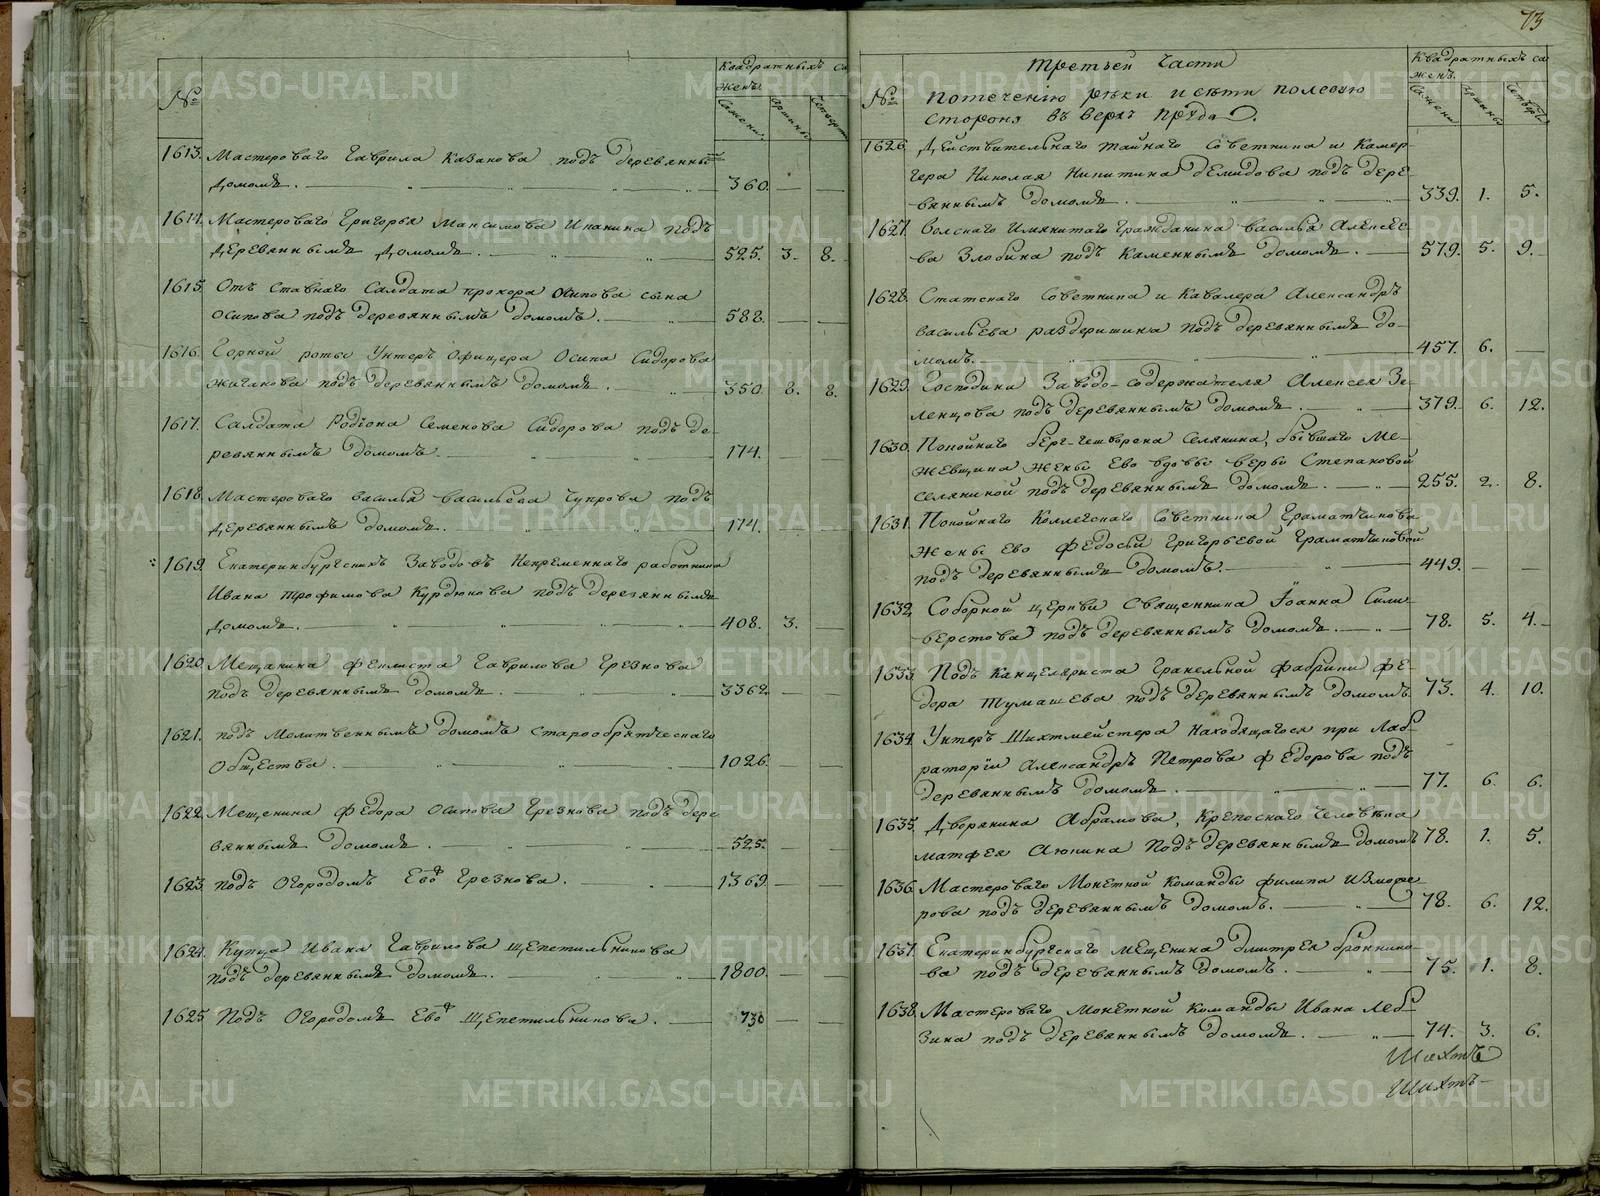 №
Квадратныхъ са
женъ.
Сажени.
Аршины
Четверт
1613. Мастероваго Гаврила Казанова подъ деревянны
домомъ. 360. — —
1614. Мастероваго Григорья Максимова Ипанина подъ
деревяннымъ домомъ. 525. 3. 8.
1615. Отъ ставнаго Салдата прохора Осипова сына
Осипова подъ деревяннымъ домомъ. 588. — —
1616. Горной роты Унтеръ Офицера Осипа Сидорова
Жиганова подъ деревяннымъ домомъ. 350. 8. 8.
1617. Салдата Родіона Семенова Сидорова подъ де-
ревяннымъ домомъ. 174. — —
1618. Мастероваго василья васильева Чупрова подъ
деревяннымъ домомъ. 174. — —
1619. Екатеринбургскихъ Заводовъ Непременнаго работника
Ивана трофимова Курдюкова подъ деревяннымъ
домомъ. 408. 3. —
1620. Мещанина феклиста Гаврилова Грезнова
подъ деревяннымъ домомъ. 3362. — —
1621. подъ Молитвеннымъ домомъ старообрятческаго
Общества. 1026. — —
1622. Мещенина федора Осипова Грезнова подъ дере
вяннымъ домомъ. 525. — —
1623. подъ Огородомъ Ево Грезнова. 1369. — —
1624. Купца Ивана Гаврилова щепетильникова
подъ деревяннымъ домомъ. 1800. — —
1625 Подъ Огородомъ Ево Щепетильникова. 730 — —
73
№
третьей Части
потеченію реки Исети полевую
сторону въ верхъ пруда.
Квадратныхъ са
женъ.
Сажени
Аршины
Четверт
1626. Действительнаго тайнаго Советника и Камер
гера Николая Никитина Демидова подъ дере
вяннымъ домомъ. 339. 1. 5.
1627. Волскаго Имянитаго Гражданина василья Алексее
ва Злобина подъ Каменнымъ домомъ. 579. 5. 9.
1628. Статскаго Советника и Кавалера Александръ
васильева раздеришина подъ деревяннымъ до-
момъ. 457. 6. —
1629. Господина Заводо-содержателя Алексея Зе-
ленцова подъ деревяннымъ домомъ. 379. 6. 12.
1630. Покойнаго берг-гешворена Селянина, бывшаго Ме-
жевщика жены Ево вдовы веры Степановой
селяниной подъ деревяннымъ домомъ. 255. 2. 8.
1631. Покойнаго Коллегскаго Советника Граматчикова
жены Ево Федосьи Григорьевой Граматчиковой
подъ деревяннымъ домомъ. 449. — —
1632. Соборной церкви Священника Іоанна Сили-
верстова подъ деревяннымъ домомъ. 78. 5. 4.
1633. Подъ Канцеляриста Гранильной фабрики фе-
дора Тумашева подъ деревяннымъ домомъ. 73. 4. 10.
1634. Унтеръ Шихтмейстера Находящагося при Лаб
раторіи Александръ Петрова федорова подъ
деревяннымъ домомъ. 77. 6. 6.
1635. Дворянина Абрамова, Крепоснаго Человека
матфея Аюпина Подъ деревяннымъ домомъ 78. 1. 5.
1636. Мастероваго Монетной Команды филипа Изможе-
рова подъ деревяннымъ домомъ. 78. 6. 12.
1637. Екатеринбургскаго мещенина дмитрея бронкино-
ва подъ деревяннымъ домомъ. 75. 1. 8.
1638. Мастероваго монетной команды Ивана Леб
Зина подъ деревяннымъ домомъ. 74. 3. 6.
Шихтъ
Шихтъ-